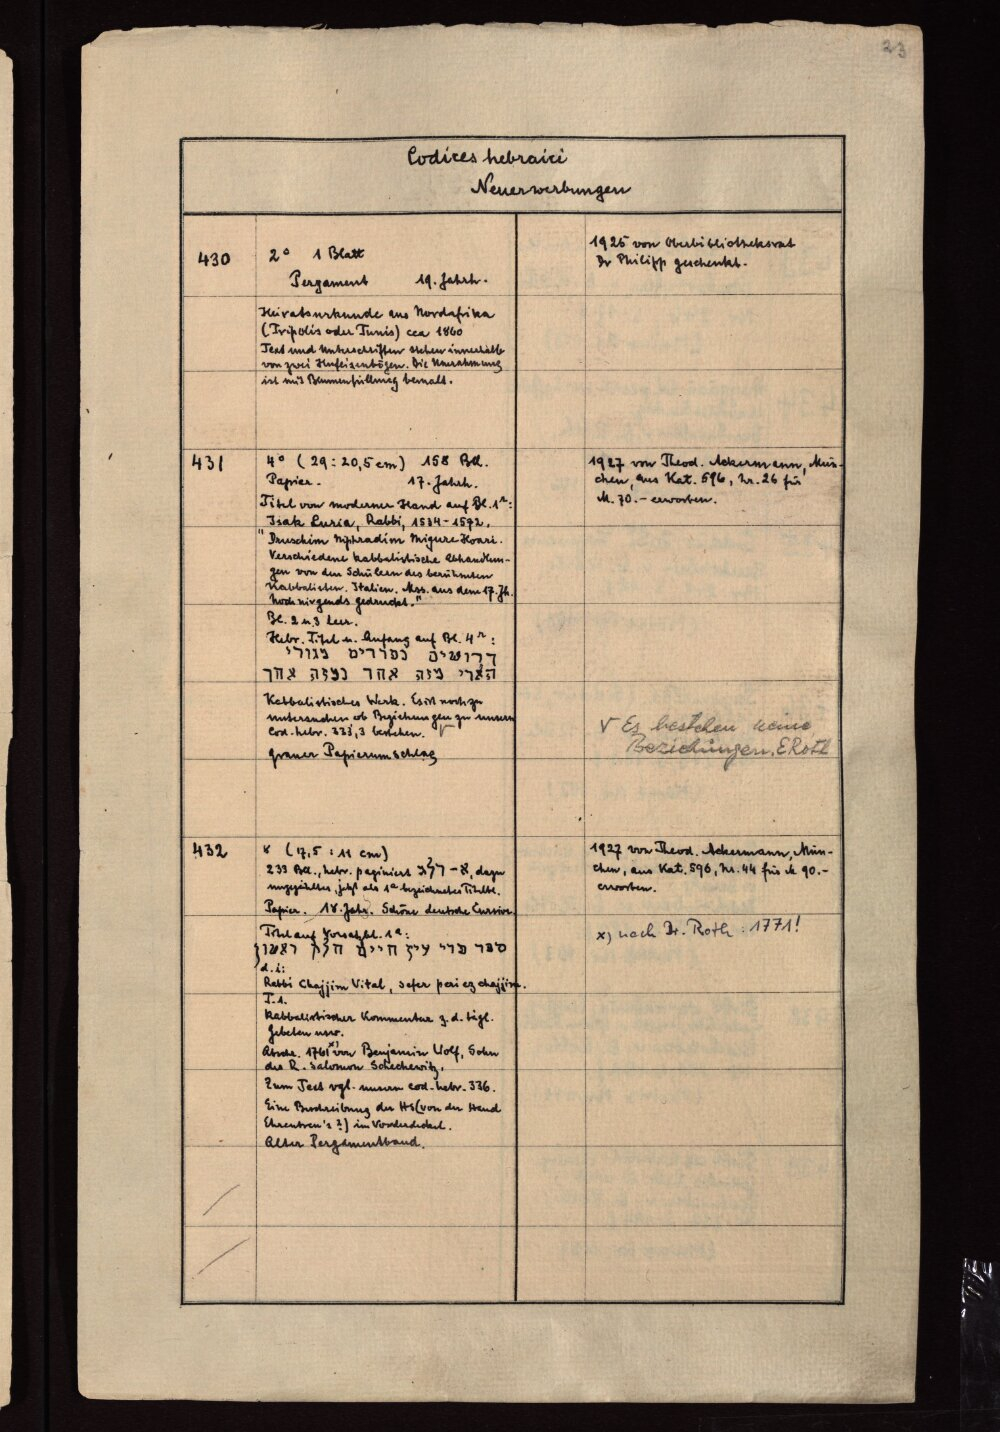 23
Codices hebraici
Neuerwerbungen
430
2° 1 Blatt
Pergament 19. Jahrh.
Heiratsurkunde aus Nordafrika
(Tripolis oder Tunis) cca 1860
Text und Unterschriften stehen innerhalb
von zwei Hufeisenbögen. Die Umrahmung
ist mit Blumenfüllung bemalt.
1925 von Oberbibliotheksrat
Dr Philipp geschenkt.
431
4° (29 : 20,5 cm) 158 Bll.
Papier. 17. Jahrh.
Titel von moderner Hand auf Bl. 1r:
Isak Luria, Rabbi, 1534-1572.
"Druschim Niphradim Migure Hoari.
Verschiedene kabbalistische Abhandlun-
gen von den Schülern des berühmten
Kabbalisten. Italien. Mss. aus dem 17. Jh.
Noch nirgends gedruckt."
Bl. 2 u. 3 leer.
Hebr. Titel u. Anfang auf Bl. 4r:
דרושים נפרדים מגורי
הארי מזה אחד ומזה אחד
Kabbalistisches Werk. Es ist noch zu
untersuchen ob Beziehungen zu unserm
Cod. hebr. 333,3 bestehen. √
grauer Papierumschlag
1927 von Theod. Ackermann, Mün-
chen, aus Kat. 596, Nr. 26 für
M. 70.- erworben.
√ Es bestehen keine
Beziehungen. E Roth
432
8° (17,5 : 11 cm)
233 Bll., hebr. paginiert א - רלג, dazu
ungezähltes, jetzt als 1a bezeichnetes Titelbl.
Papier. 18. Jahr. Schöne deutsche Cursive.
Titel auf Vorsatzbl. 1a:
ספר פרי עץ חיים חלק ראשון
d. i:
Rabbi Chajjim Vital, sefer peri ez chajjim.
T. 1.
Kabbalistischer Kommentar z. d. tägl.
Gebeten usw.
Abschr. 1761 x) von Benjamin Wolf, Sohn
des R. Salomon Schechowitz.
Zum Text vgl. unsern cod. hebr. 336.
Eine Beschreibung der HS (von der Hand
Ehrentreu's ?) im Vorderdeckel.
Alter Pergamentband.
1927 von Theod. Ackermann, Mün-
chen, aus Kat. 596, Nr. 44 für M 90.-
erworben.
x) nach Dr. Roth : 1771!